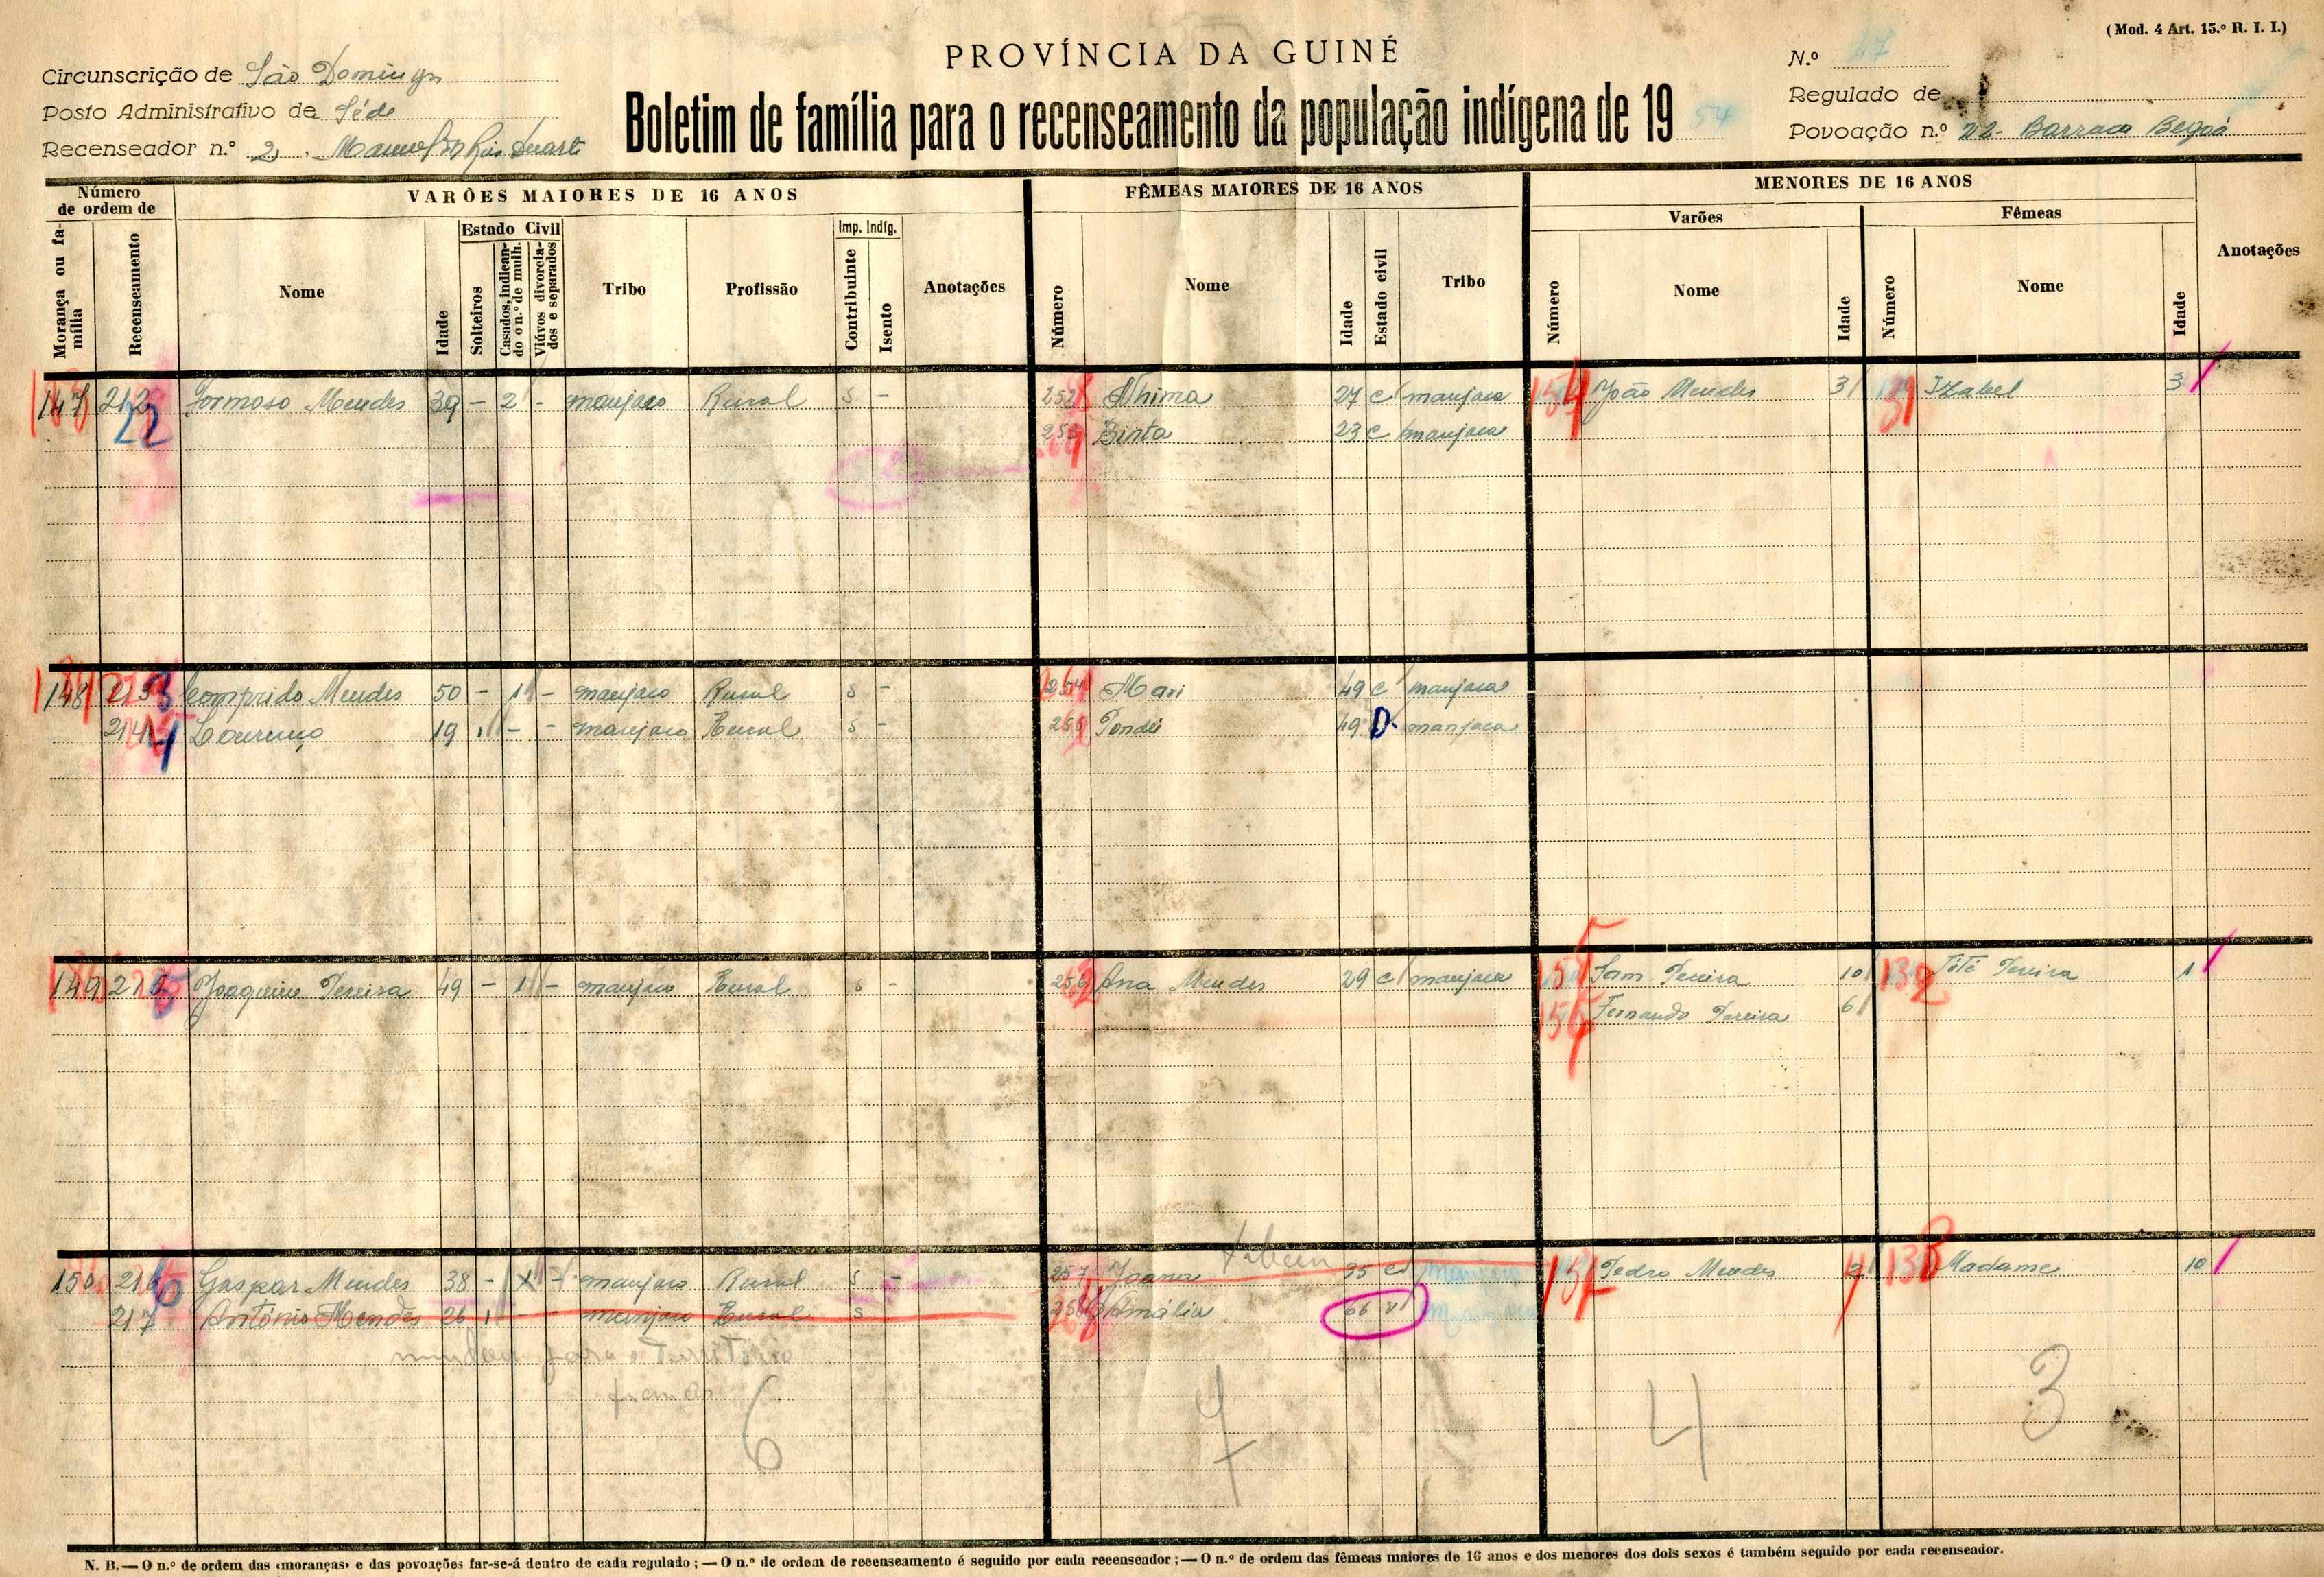 (Mod. 4 Art. 15.º R. I. I.)
PROVÍNCIA DA GUINÉ
Boletim de família para o recenseamento da população indígena de 1954
Circunscrição de São Domingos
Posto Administrativo de Séde
Recenseador n.º 2,
N.º 47
Regulado de
Povoação n.º 22- Barraca Begoá
Número de ordem de
Morança ou família
Recenseamento
VARÕES MAIORES DE 16 ANOS
Nome
Idade
Estado Civil
Solteiros
Casados, indicando o n.º de mulh.
Viúvos divorciados e separados
Tribo
Profissão
Imp. Indíg.
Contribuinte
Isento
Anotações
FÊMEAS MAIORES DE 16 ANOS
Número
Nome
Idade
Estado civil
Tribo
MENORES DE 16 ANOS
Varões
Número
Nome
Idade
Fêmeas
Número
Nome
Idade
Anotações
147 212 Formoso Mendes 39 - 2 - manjaco Rural S - 252 Nhima 27 C manjaca 154 João Mendes 3 131 Izabel 3
22 253 Binta 23 C manjaca
148 213 Comprido Mendes 50 - 1 - manjaco Rural S - 254 Mari 49 C manjaca
214 Lourenço 19 1 - - manjaco Rural S - 255 49 D. manjaca
149 215 Joaquim Pereira 49 - 1 - manjaco Rural S - 256 Ana Mendes 29 C manjaca 155 Sam Pereira 10 132 Tété Pereira 1
156 Fernando Pereira 6
150 216 Gaspar Mendes 38 - manjaco Rural S - 257 Joana 35 C 157 Pedro Mendes 133 Madame 10
217 António Mendes 26 1 - - manjaco Rural S 258 Amália 66 V
mudou para o Território
6 7 4 3
N. B. — O n.º de ordem das «moranças» e das povoações far-se-á dentro de cada regulado; — O n.º de ordem de recenseamento é seguido por cada recenseador; — O n.º de ordem das fêmeas maiores de 16 anos e dos menores dos dois sexos é também seguido por cada recenseador.